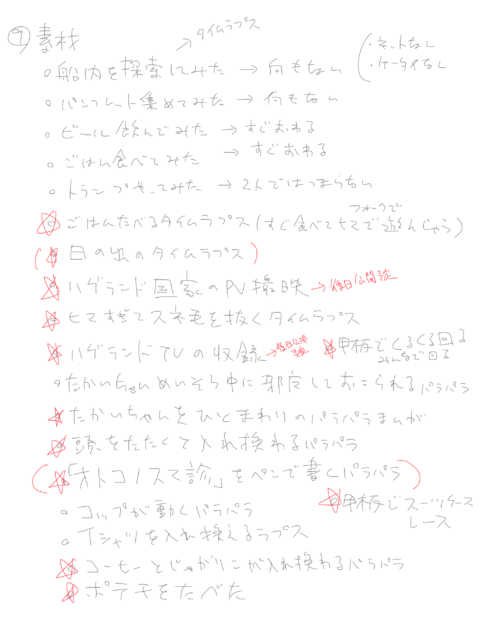 ⑨ 素材
→ タイムラプス
○船内を探索してみた → 何もない
・ネットなし
・ケータイなし
○パンフレット集めてみた → 何もない
○ビール飲んでみた → すぐおわる
○ごはん食べてみた → すぐおわる
○トランプやってみた → 2人ではつまらない
フォークで
○ごはんたべるタイムラプス(すぐ食べてヒマで遊んじゃう)
(日の出のタイムラプス)
ハゲランド国家のPV撮映→後日公開談
ヒマすぎてスネ毛を抜くタイムラプス
ハゲランドTVの収録→後日公開談
甲板でくるくる回る
みんなで回る
たかいちゃんめいそう中に邪魔しておこられるパラパラ
たかいちゃんをひとまわりのパラパラまんが
頭をたたくと入れ換わるパラパラ
(「オトコノスマ診」をペンで書くパラパラ)
○コップが動くパラパラ
甲板でスーツケース
レース
○Tシャツを入れ換えるラプス
コーヒーとじゃがりこが入れ換わるパラパラ
ポテチをたべた